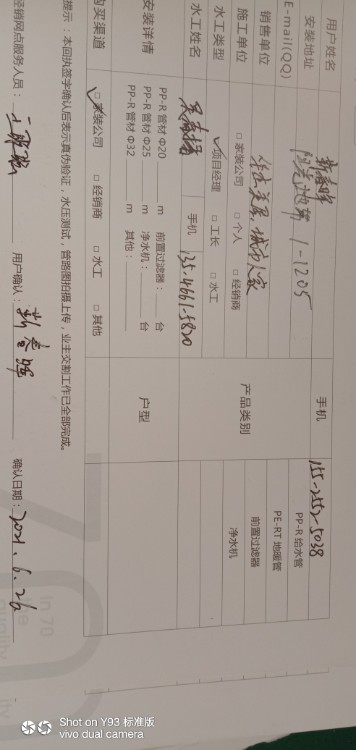 用户姓名 手机 155-2552-5038
安装地址 阳光地带 1-1205
E-mail(QQ)
销售单位 城市人家
施工单位 □ 家装公司 □ 个人 □ 经销商
水工类型 ☑ 项目经理 □ 工长 □ 水工
水工姓名 手机 135-4661-5820
产品类别
PP-R 给水管
PE-RT 地暖管
前置过滤器
净水机
安装详情
PP-R 管材 Φ20 m 前置过滤器: 台
PP-R 管材 Φ25 m 净水机: 台
PP-R 管材 Φ32 m 其他:
户型
购买渠道 ☑ 家装公司 □ 经销商 □ 水工 □ 其他
提示:本回执签字确认后表示真伪验证,水压测试,管路图拍摄上传,业主交割工作已全部完成。
经销网点服务人员: 用户确认: 确认日期: 2021.6.26
In 70
Shot on Y93 标准版
vivo dual camera